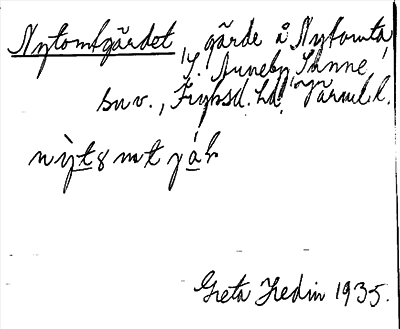 Nytomtgärdet, gärde å Nytomta,
Y. Anneby, Sunne
snv., Fryksd. hd, Värml. l.
nỳt8mt já
Greta Hedin 1935.